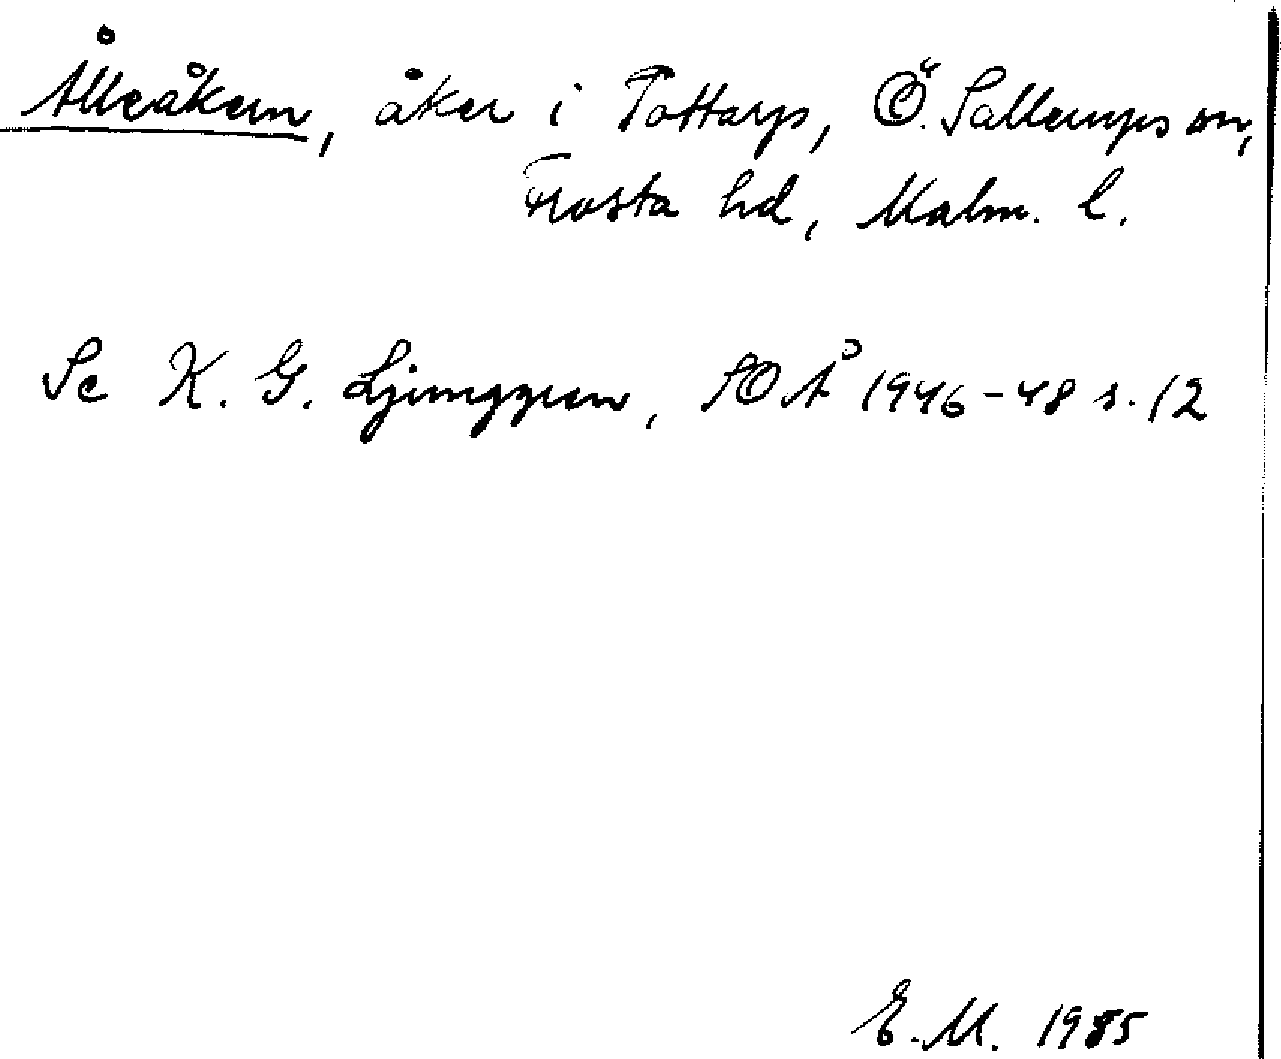 Ålleåkern, åker i Tottarp, Ö. Sallerups sn,
Frosta hd, Malm. l.
Se K. G. Ljunggren, SOÅ 1946-48 s. 12
E. M. 1985